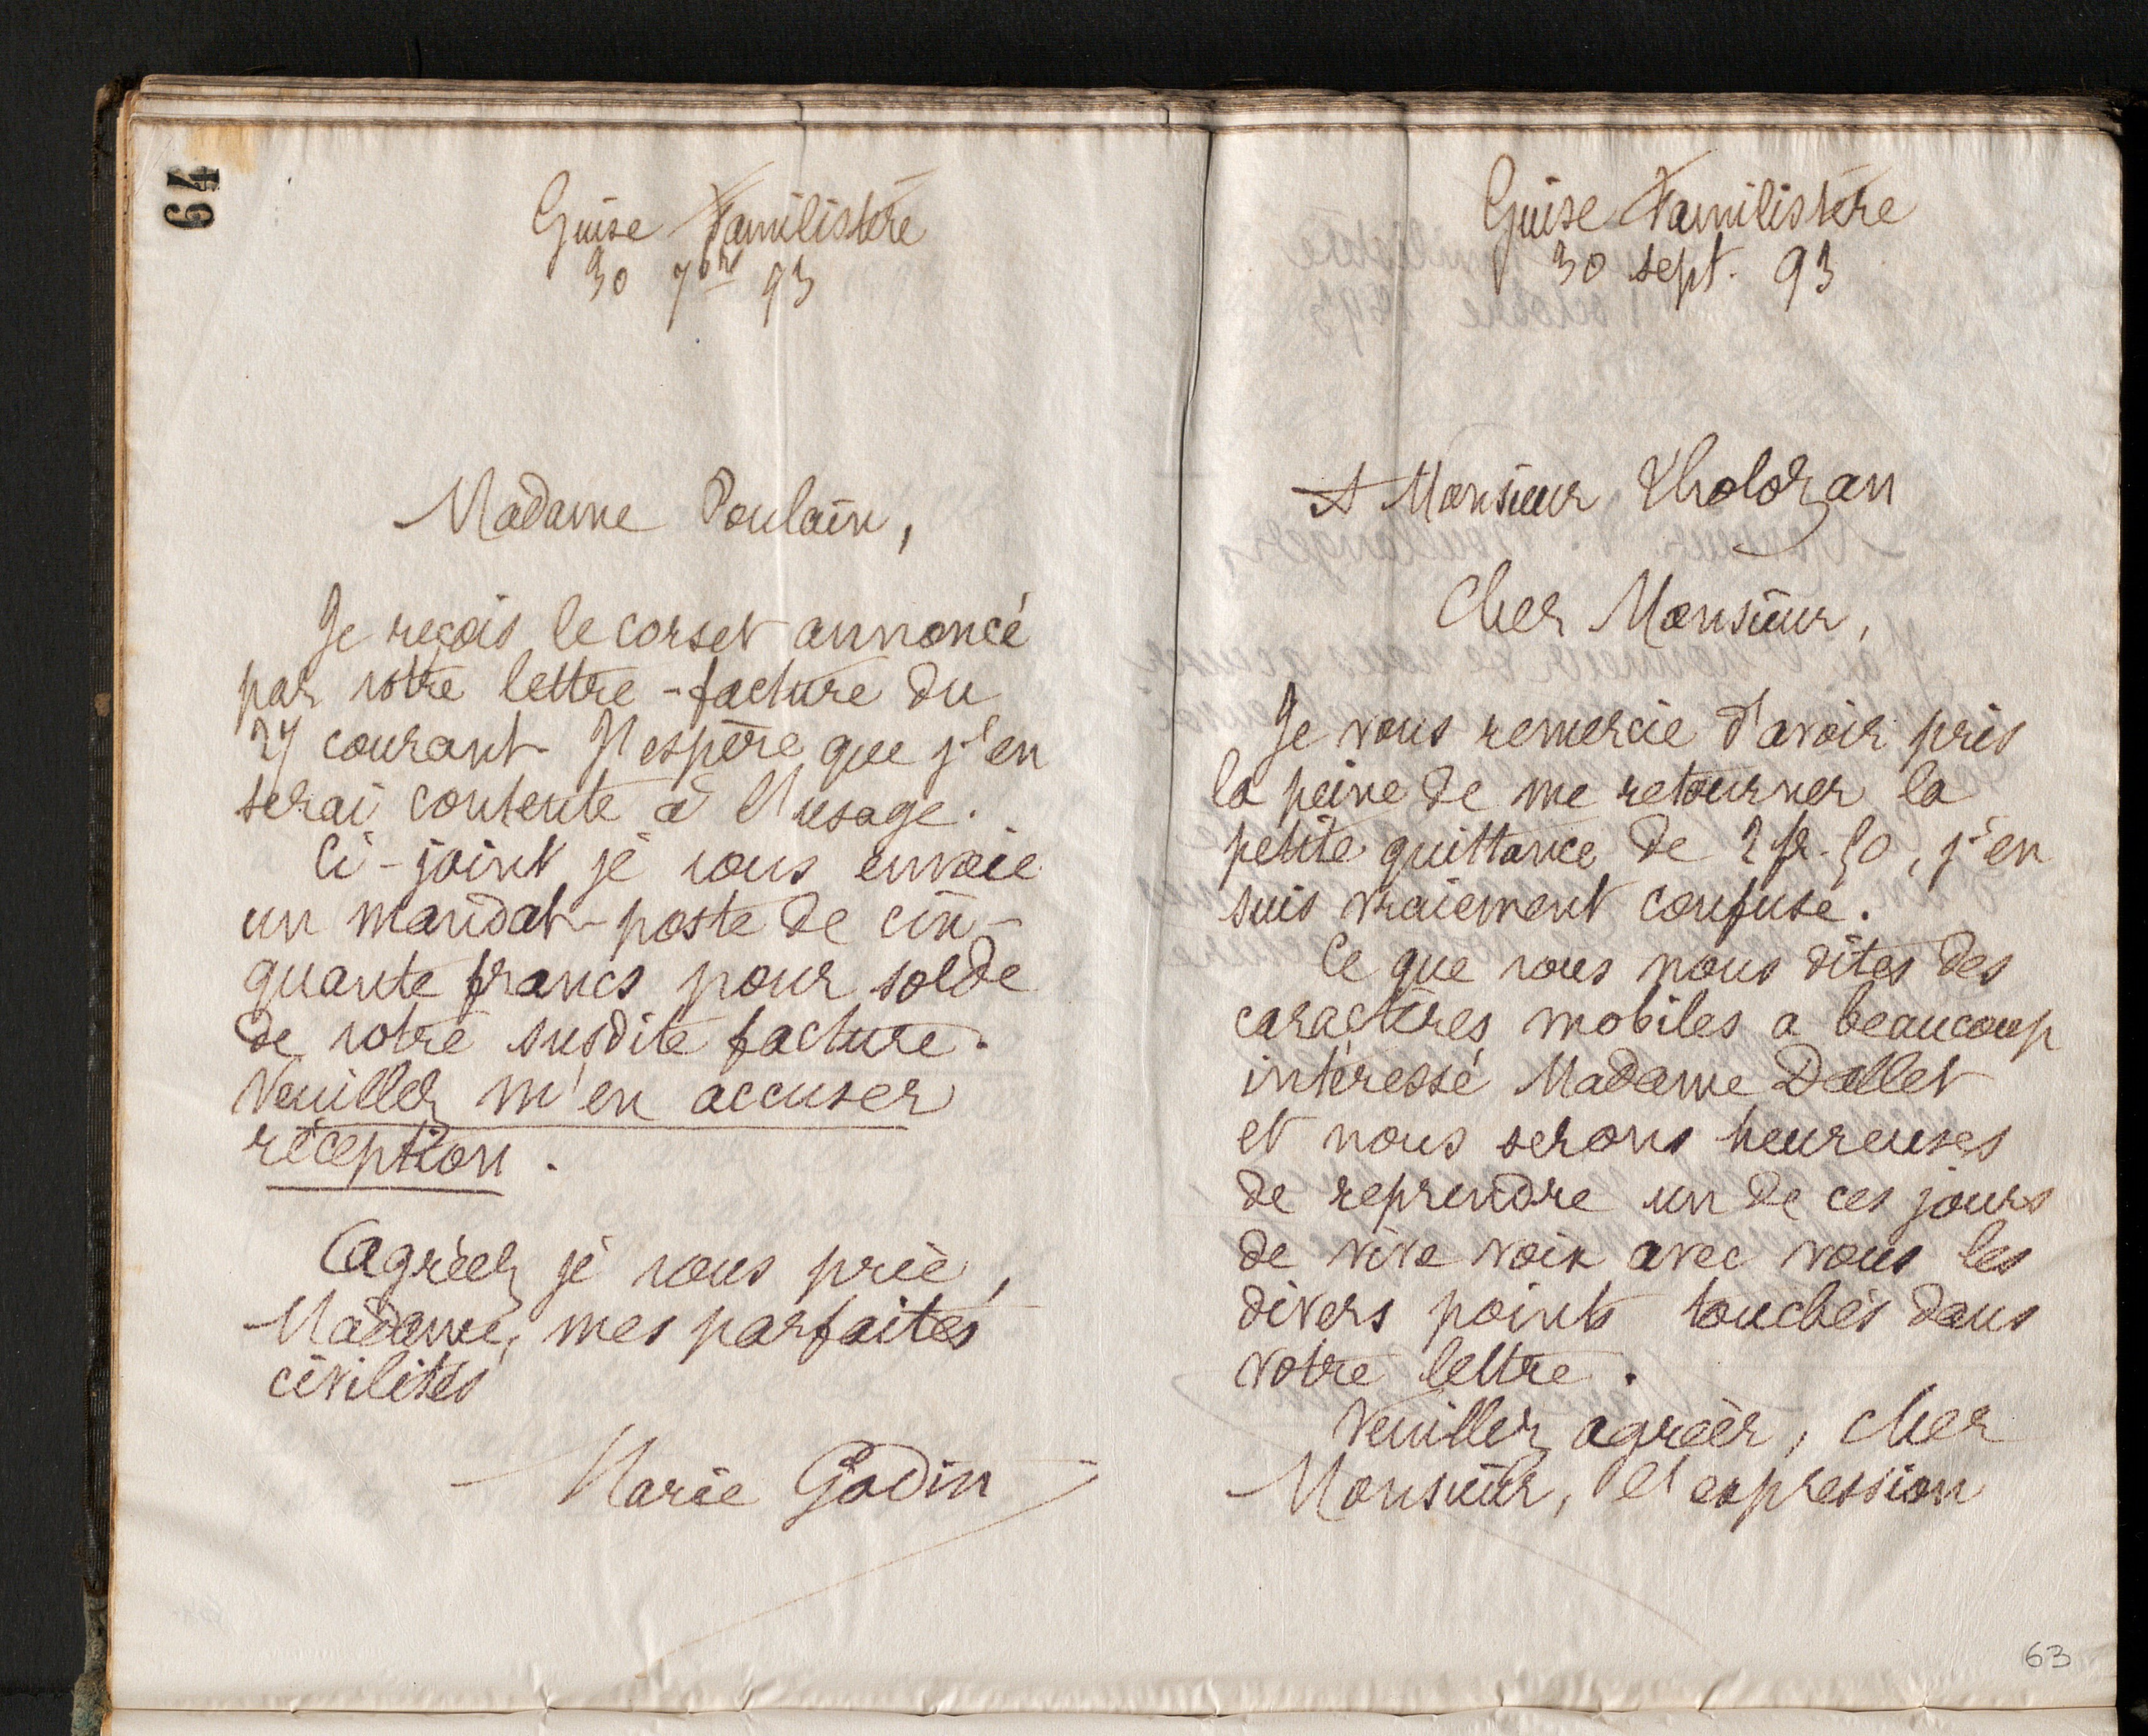 64
Guise Familistère
30 7bre 93
Madame Poulain,
Je reçois le corset annoncé
par votre lettre-facture du
27 courant. J'espère que j'en
serai contente à l'usage.
Ci-joint je vous envoie
un mandat-poste de cin-
quante francs pour solde
de votre susdite facture.
Veuillez m'en accuser
réception.
Agréez je vous prie,
Madame, mes parfaites
civilités
Marie Godin
Guise Familistère
30 sept. 93
A Monsieur Tholozan
Cher Monsieur,
Je vous remercie d'avoir pris
la peine de me retourner la
petite quittance de 2 fr. 50, j'en
suis vraiement confuse.
Ce que vous nous dites des
caractères mobiles a beaucoup
intéressé Madame Dallet
et nous serons heureuses
de reprendre un de ces jours
de vive voix avec vous les
divers points touchés dans
votre lettre.
Veuillez agréer, cher
Monsieur, l'expression
63